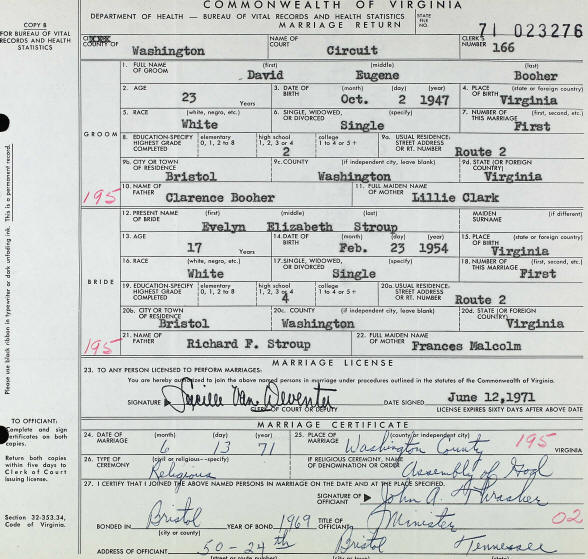 COMMONWEALTH OF VIRGINIA
DEPARTMENT OF HEALTH — BUREAU OF VITAL RECORDS AND HEALTH STATISTICS
MARRIAGE RETURN
STATE FILE NO. 71 023276
COPY B
FOR BUREAU OF VITAL
RECORDS AND HEALTH
STATISTICS
COUNTY OF Washington NAME OF COURT Circuit CLERK'S NUMBER 166
GROOM
1. FULL NAME OF GROOM (first) David (middle) Eugene (last) Booher
2. AGE 23 Years 3. DATE OF BIRTH (month) (day) (year) Oct. 2 1947 4. PLACE OF BIRTH (state or foreign country) Virginia
5. RACE (white, negro, etc.) White 6. SINGLE, WIDOWED, OR DIVORCED (specify) Single 7. NUMBER OF THIS MARRIAGE (first, second, etc.) First
8. EDUCATION-SPECIFY HIGHEST GRADE COMPLETED elementary 0, 1, 2 to 8 high school 1, 2, 3 or 4 2 college 1 to 4 or 5+ 9a. USUAL RESIDENCE: STREET ADDRESS OR RT. NUMBER Route 2
9b. CITY OR TOWN OF RESIDENCE Bristol 9c. COUNTY (if independent city, leave blank) Washington 9d. STATE (OR FOREIGN COUNTRY) Virginia
195 10. NAME OF FATHER Clarence Booher 11. FULL MAIDEN NAME OF MOTHER Lillie Clark
BRIDE
12. PRESENT NAME OF BRIDE (first) (middle) (last) Evelyn Elizabeth Stroup MAIDEN SURNAME (if different)
13. AGE 17 Years 14. DATE OF BIRTH (month) (day) (year) Feb. 23 1954 15. PLACE OF BIRTH (state or foreign country) Virginia
16. RACE (white, negro, etc.) White 17. SINGLE, WIDOWED, OR DIVORCED (specify) Single 18. NUMBER OF THIS MARRIAGE (first, second, etc.) First
19. EDUCATION-SPECIFY HIGHEST GRADE COMPLETED elementary 0, 1, 2 to 8 high school 1, 2, 3 or 4 4 college 1 to 4 or 5+ 20a. USUAL RESIDENCE: STREET ADDRESS OR RT. NUMBER Route 2
20b. CITY OR TOWN OF RESIDENCE Bristol 20c. COUNTY (if independent city, leave blank) Washington 20d. STATE (OR FOREIGN COUNTRY) Virginia
195 21. NAME OF FATHER Richard F. Stroup 22. FULL MAIDEN NAME OF MOTHER Frances Malcolm
MARRIAGE LICENSE
23. TO ANY PERSON LICENSED TO PERFORM MARRIAGES:
You are hereby authorized to join the above named persons in marriage under procedures outlined in the statutes of the Commonwealth of Virginia.
SIGNATURE Lucille Van Deventer DATE SIGNED June 12,1971
CLERK OF COURT OR DEPUTY LICENSE EXPIRES SIXTY DAYS AFTER ABOVE DATE
MARRIAGE CERTIFICATE
24. DATE OF MARRIAGE (month) (day) (year) 6 13 71 25. PLACE OF MARRIAGE (county or independent city) Washington County 195 VIRGINIA
26. TYPE OF CEREMONY (civil or religious—specify) Religious IF RELIGIOUS CEREMONY, NAME OF DENOMINATION OR ORDER Assembly of God
27. I CERTIFY THAT I JOINED THE ABOVE NAMED PERSONS IN MARRIAGE ON THE DATE AND AT THE PLACE SPECIFIED.
SIGNATURE OF OFFICIANT John A. Thrasher
BONDED IN Bristol (city or county) YEAR OF BOND 1969 TITLE OF OFFICIANT Minister 02
ADDRESS OF OFFICIANT 50-24th Bristol Tennessee
(street or route number) (city or town) (state)
Please use black ribbon in typewriter or dark unfading ink. This is a permanent record.
TO OFFICIANT:
Complete and sign
certificates on both
copies.
Return both copies
within five days to
Clerk of Court
issuing license.
Section 32-353.34,
Code of Virginia.